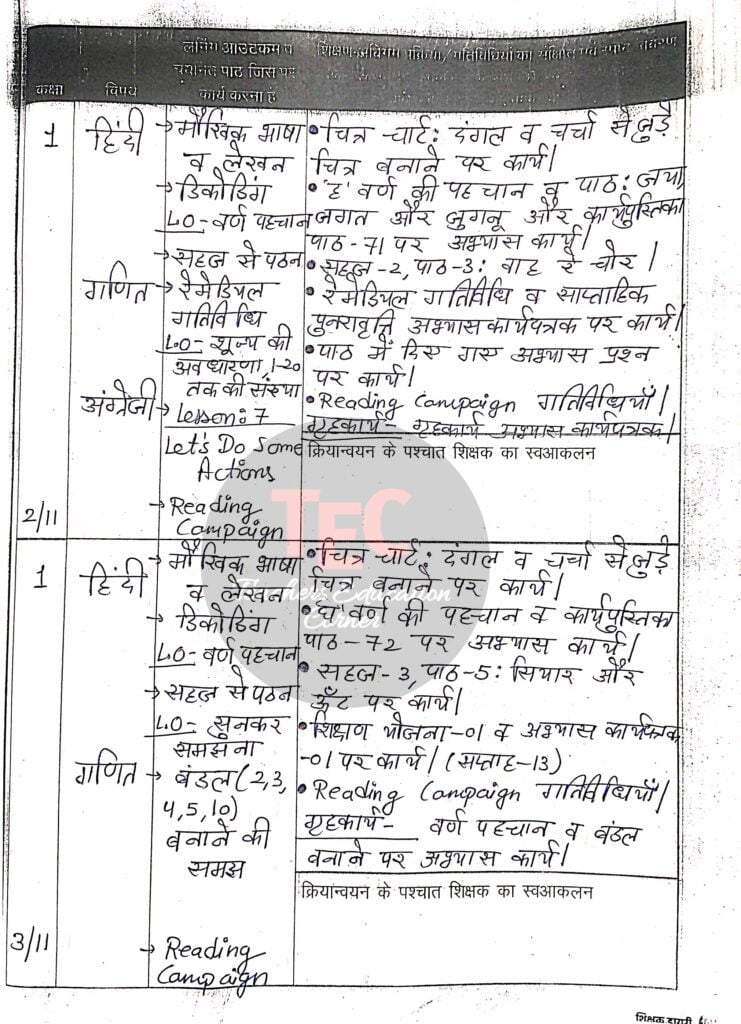 लर्निंग आउटकम व
शिक्षण-अधिगम प्रक्रिया/गतिविधियों का संक्षिप्त एवं स्पष्ट विवरण
चयनित पाठ जिस पर
कक्षा
विषय
कार्य करना है
1
हिंदी
→ मौखिक भाषा
व लेखन
→ डिकोडिंग
LO- वर्ण पहचान
→ सहज से पठन
गणित
→ रेमेडियल
गतिविधि
LO- शून्य की
अवधारणा, 1-20
तक की संख्या
अंग्रेजी
→ Lesson: 7
Let's Do Some
Actions
→ Reading
Campaign
2/11
• चित्र चार्ट: दंगल व चर्चा से जुड़े
चित्र बनाने पर कार्य।
• वर्ण की पहचान व पाठ: जया,
जगत और जुगनू और कार्यपुस्तिका
पाठ-71 पर अभ्यास कार्य।
• सहज-2, पाठ-3: वाह रे चोर।
• रेमेडियल गतिविधि व साप्ताहिक
पुनरावृत्ति अभ्यास कार्यपत्रक पर कार्य।
• पाठ में दिए गए अभ्यास प्रश्न
पर कार्य।
• Reading Campaign गतिविधियाँ।
गृहकार्य- गृहकार्य अभ्यास कार्यपत्रक।
क्रियान्वयन के पश्चात शिक्षक का स्वआकलन
TEC
Teachers Education
Corner
1
हिंदी
→ मौखिक भाषा
व लेखन
→ डिकोडिंग
LO- वर्ण पहचान
→ सहज से पठन
LO- सुनकर
समझना
गणित
→ बंडल (2,3,
4,5,10)
बनाने की
समझ
→ Reading
Campaign
3/11
• चित्र चार्ट: दंगल व चर्चा से जुड़े
चित्र बनाने पर कार्य।
• वर्ण की पहचान व कार्यपुस्तिका
पाठ-72 पर अभ्यास कार्य।
• सहज-3, पाठ-5: सियार और
ऊँट पर कार्य।
• शिक्षण योजना-01 व अभ्यास कार्यपत्रक
-01 पर कार्य। (सप्ताह-13)
• Reading Campaign गतिविधियाँ।
गृहकार्य- वर्ण पहचान व बंडल
बनाने पर अभ्यास कार्य।
क्रियान्वयन के पश्चात शिक्षक का स्वआकलन
शिक्षक डायरी